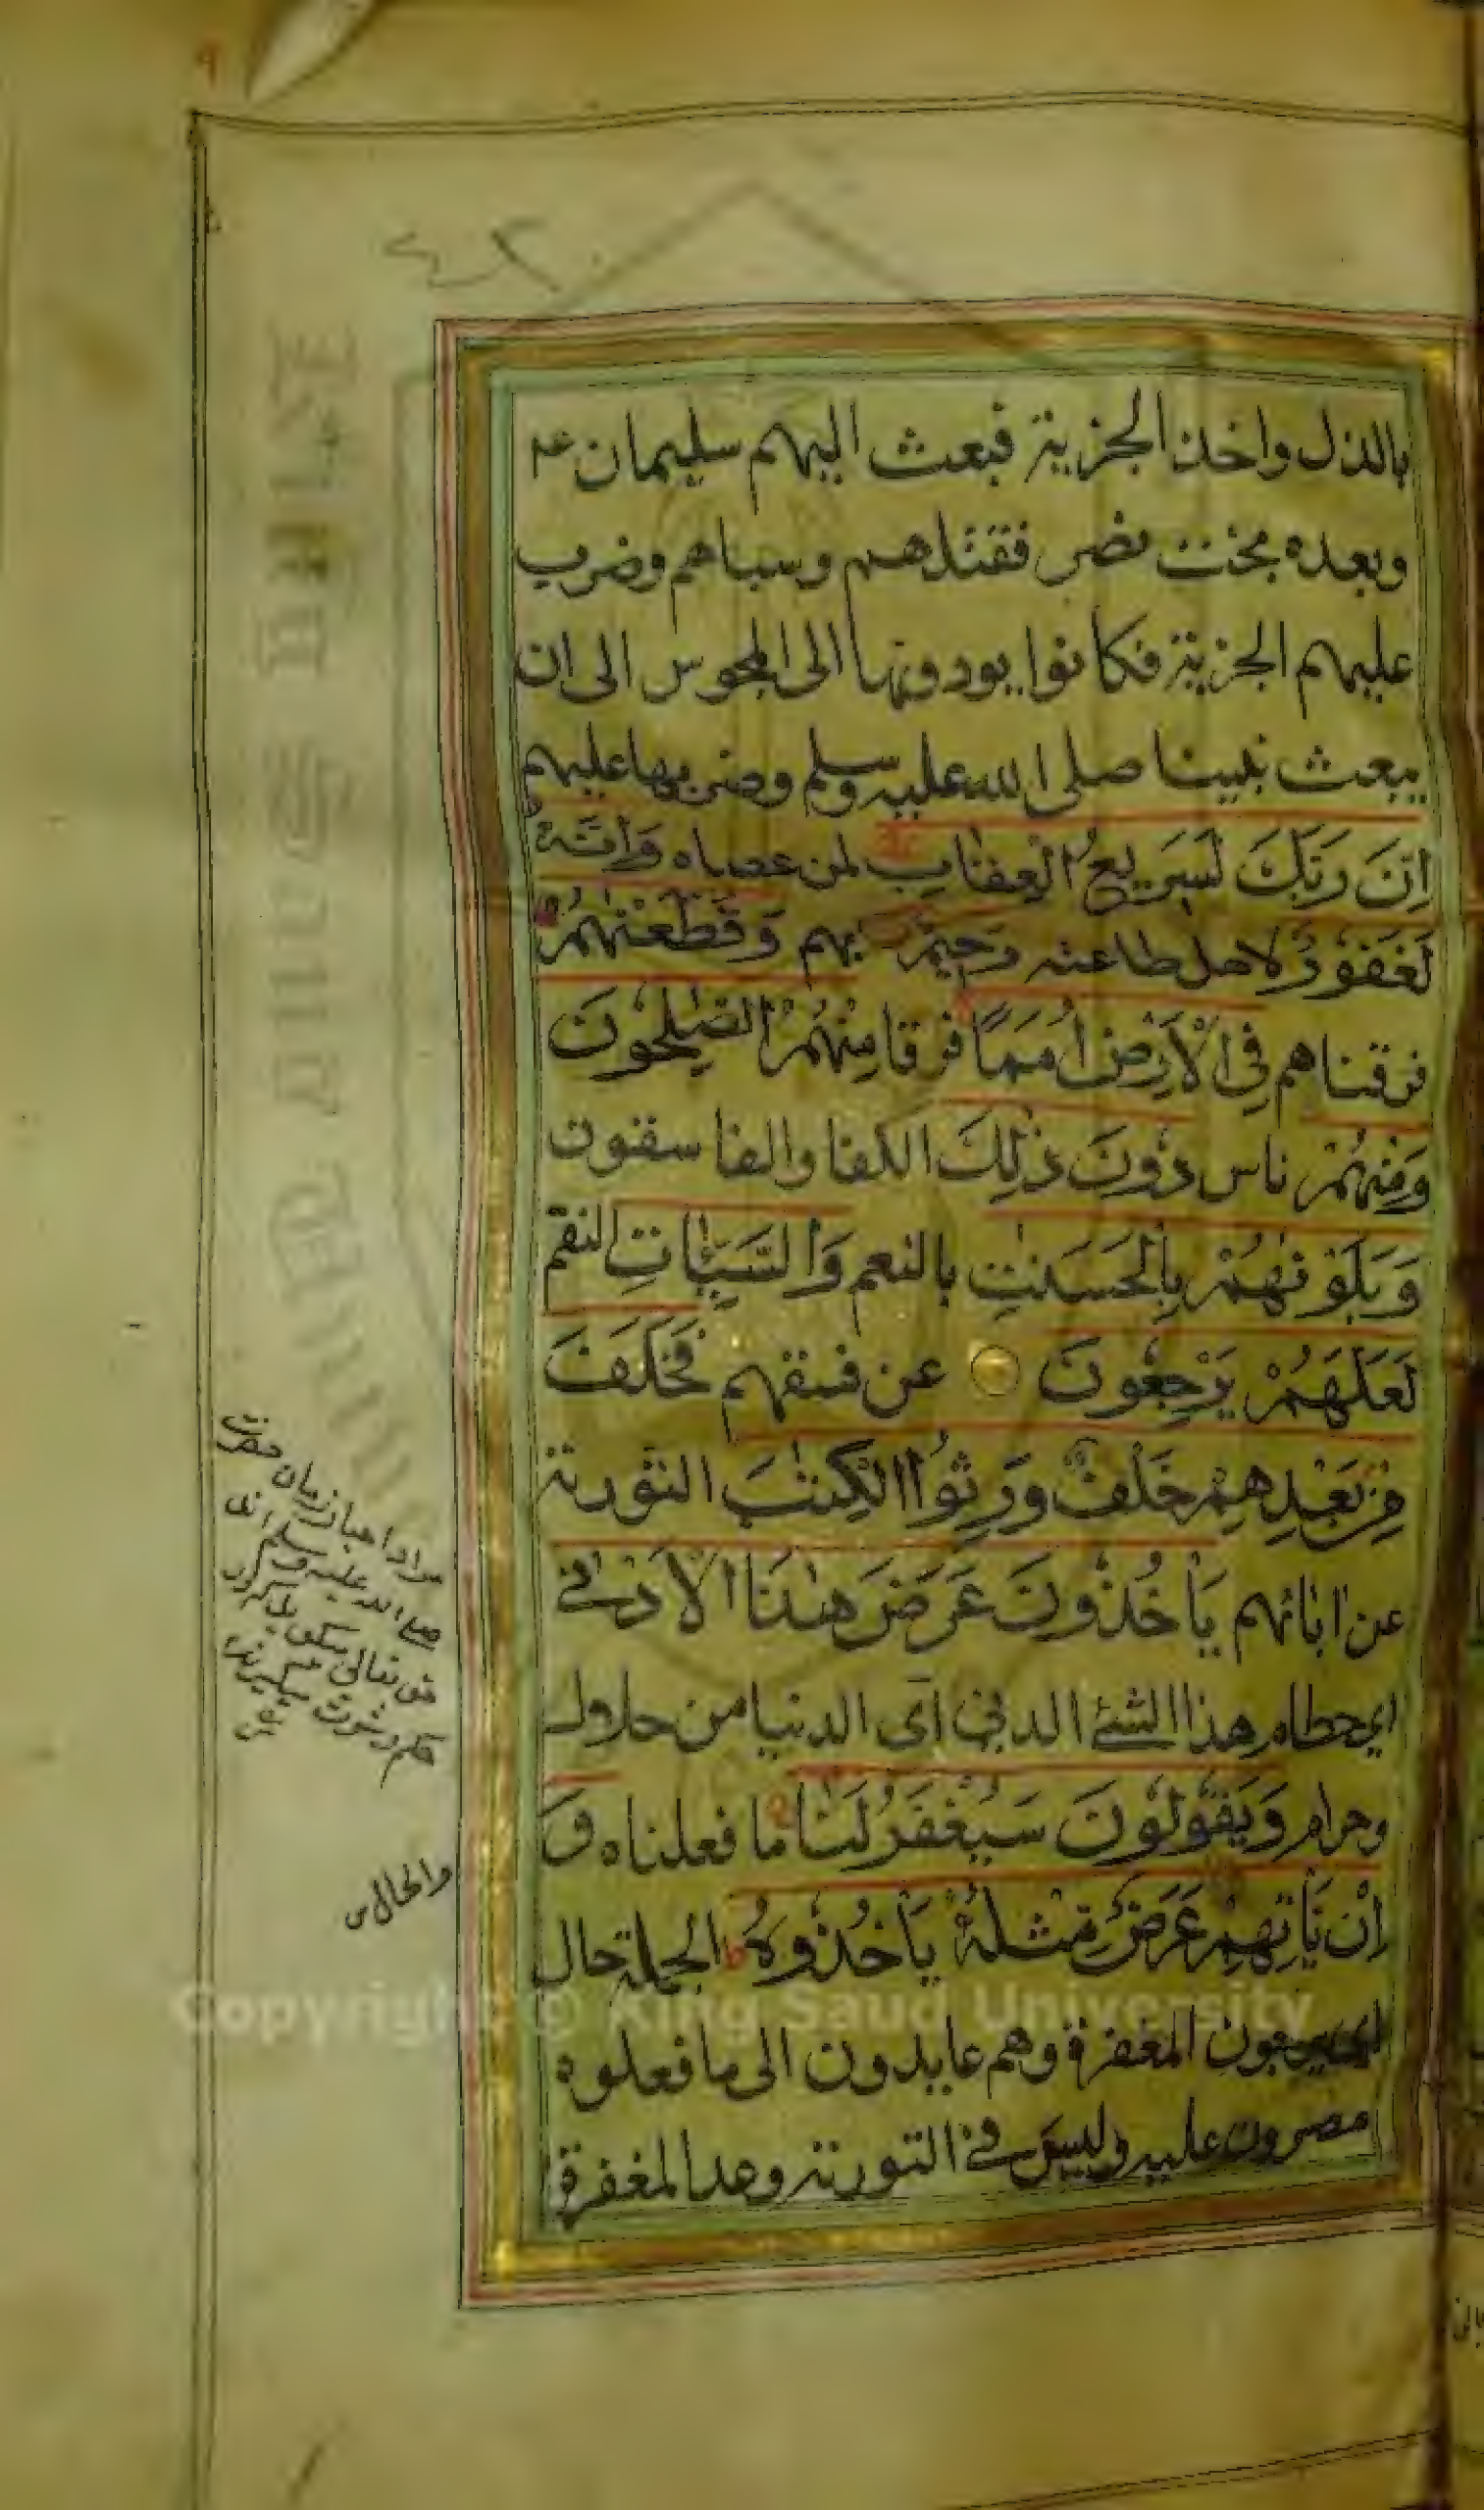 بالذل واخذ الجزية فبعث اليهم سليمان ع
وبعده بخت نصر فقتلهم وسباهم وضرب
عليهم الجزية فكانوا يودونها الى المجوس الى ان
بعث نبينا صلى الله عليه وسلم وضربها عليهم
اِنَّ رَبَّكَ لَسَرِيعُ الْعِقَابِ لمن عصاه وَاِنَّهُ
لَغَفُورٌ لاهل طاعته رَحِيمٌ بهم وَقَطَّعْنٰهُمْ
فرقناهم فِى الْاَرْضِ اُمَمًا فرقا مِنْهُمُ الصّٰلِحُونَ
وَمِنْهُمْ ناس دُونَ ذٰلِكَ الكفار والفاسقون
وَبَلَوْنٰهُمْ بِالْحَسَنٰتِ بالنعم وَالسَّيِّاٰتِ النقم
لَعَلَّهُمْ يَرْجِعُونَ عن فسقهم فَخَلَفَ
مِنْ بَعْدِهِمْ خَلْفٌ وَرِثُوا الْكِتٰبَ التورية
عن ابائهم يَاْخُذُونَ عَرَضَ هٰذَا الْاَدْنٰى
اى حطام هذا الشئ الدنى اى الدنيا من حلال
وحرام وَيَقُولُونَ سَيُغْفَرُ لَنَا ما فعلناه وَ
اِنْ يَاْتِهِمْ عَرَضٌ مِثْلُهُ يَاْخُذُوهُ الجملة حال
اى يرجون المغفرة وهم عايدون الى ما فعلوه
مصرون عليه وليس فى التورية وعد المغفرة
مراد احبار زمان حضرت
صلى الله عليه وسلم اند
حق تعالى
حكم رشوت ميكيرند
والحال
Copyright © King Saud University